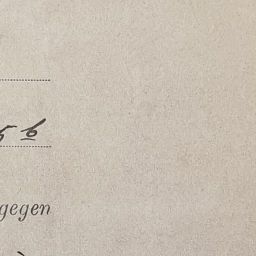 5 b
gegen